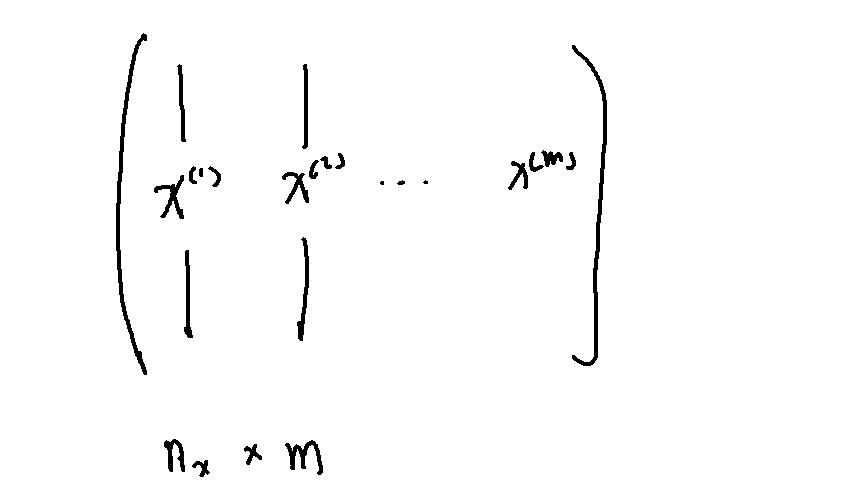 x^(1) x^(2) ... x^(m)
n_x × m